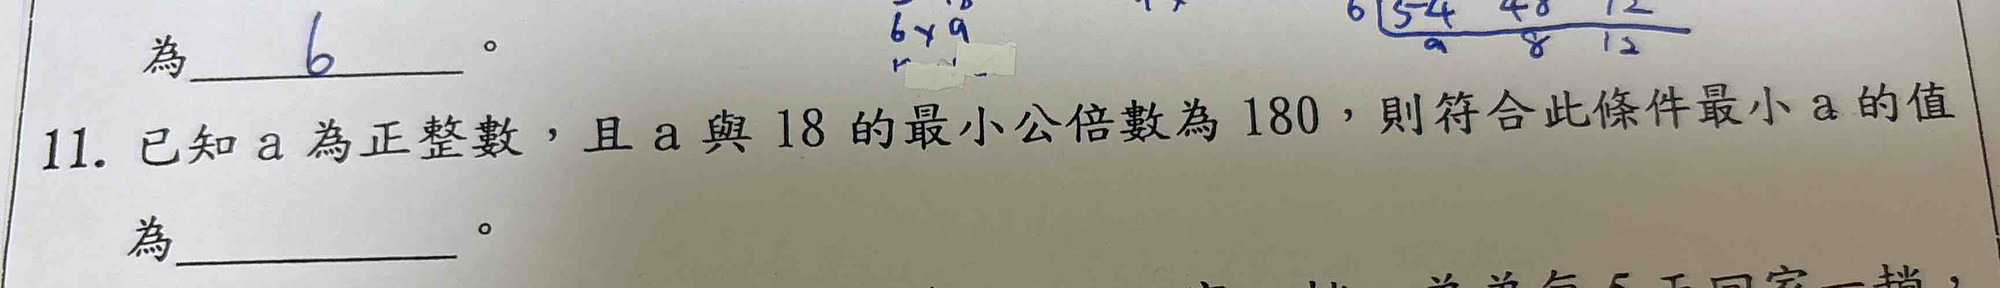 6×9
6 54 48 12
9 8 12
為 6 。
11. 已知 a 為正整數，且 a 與 18 的最小公倍數為 180，則符合此條件最小 a 的值
為 。